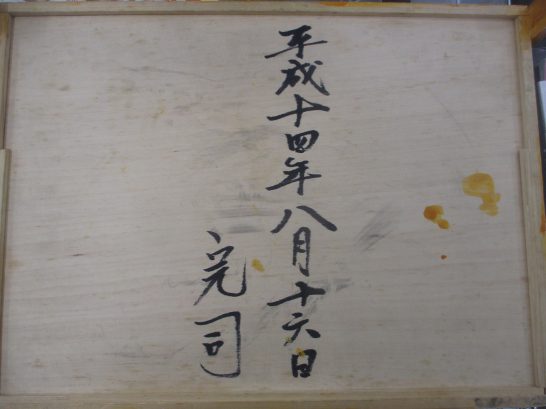 平成十四年八月十六日
完司